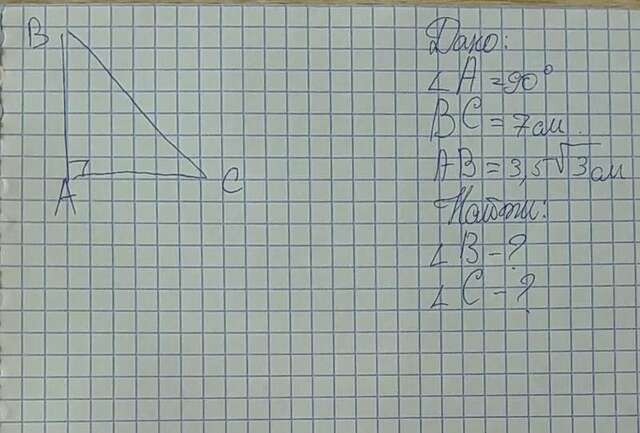 B
A
C
Дано:
∠A = 90°
BC = 7 см.
AB = 3,5√3 см
Найти:
∠B - ?
∠C - ?